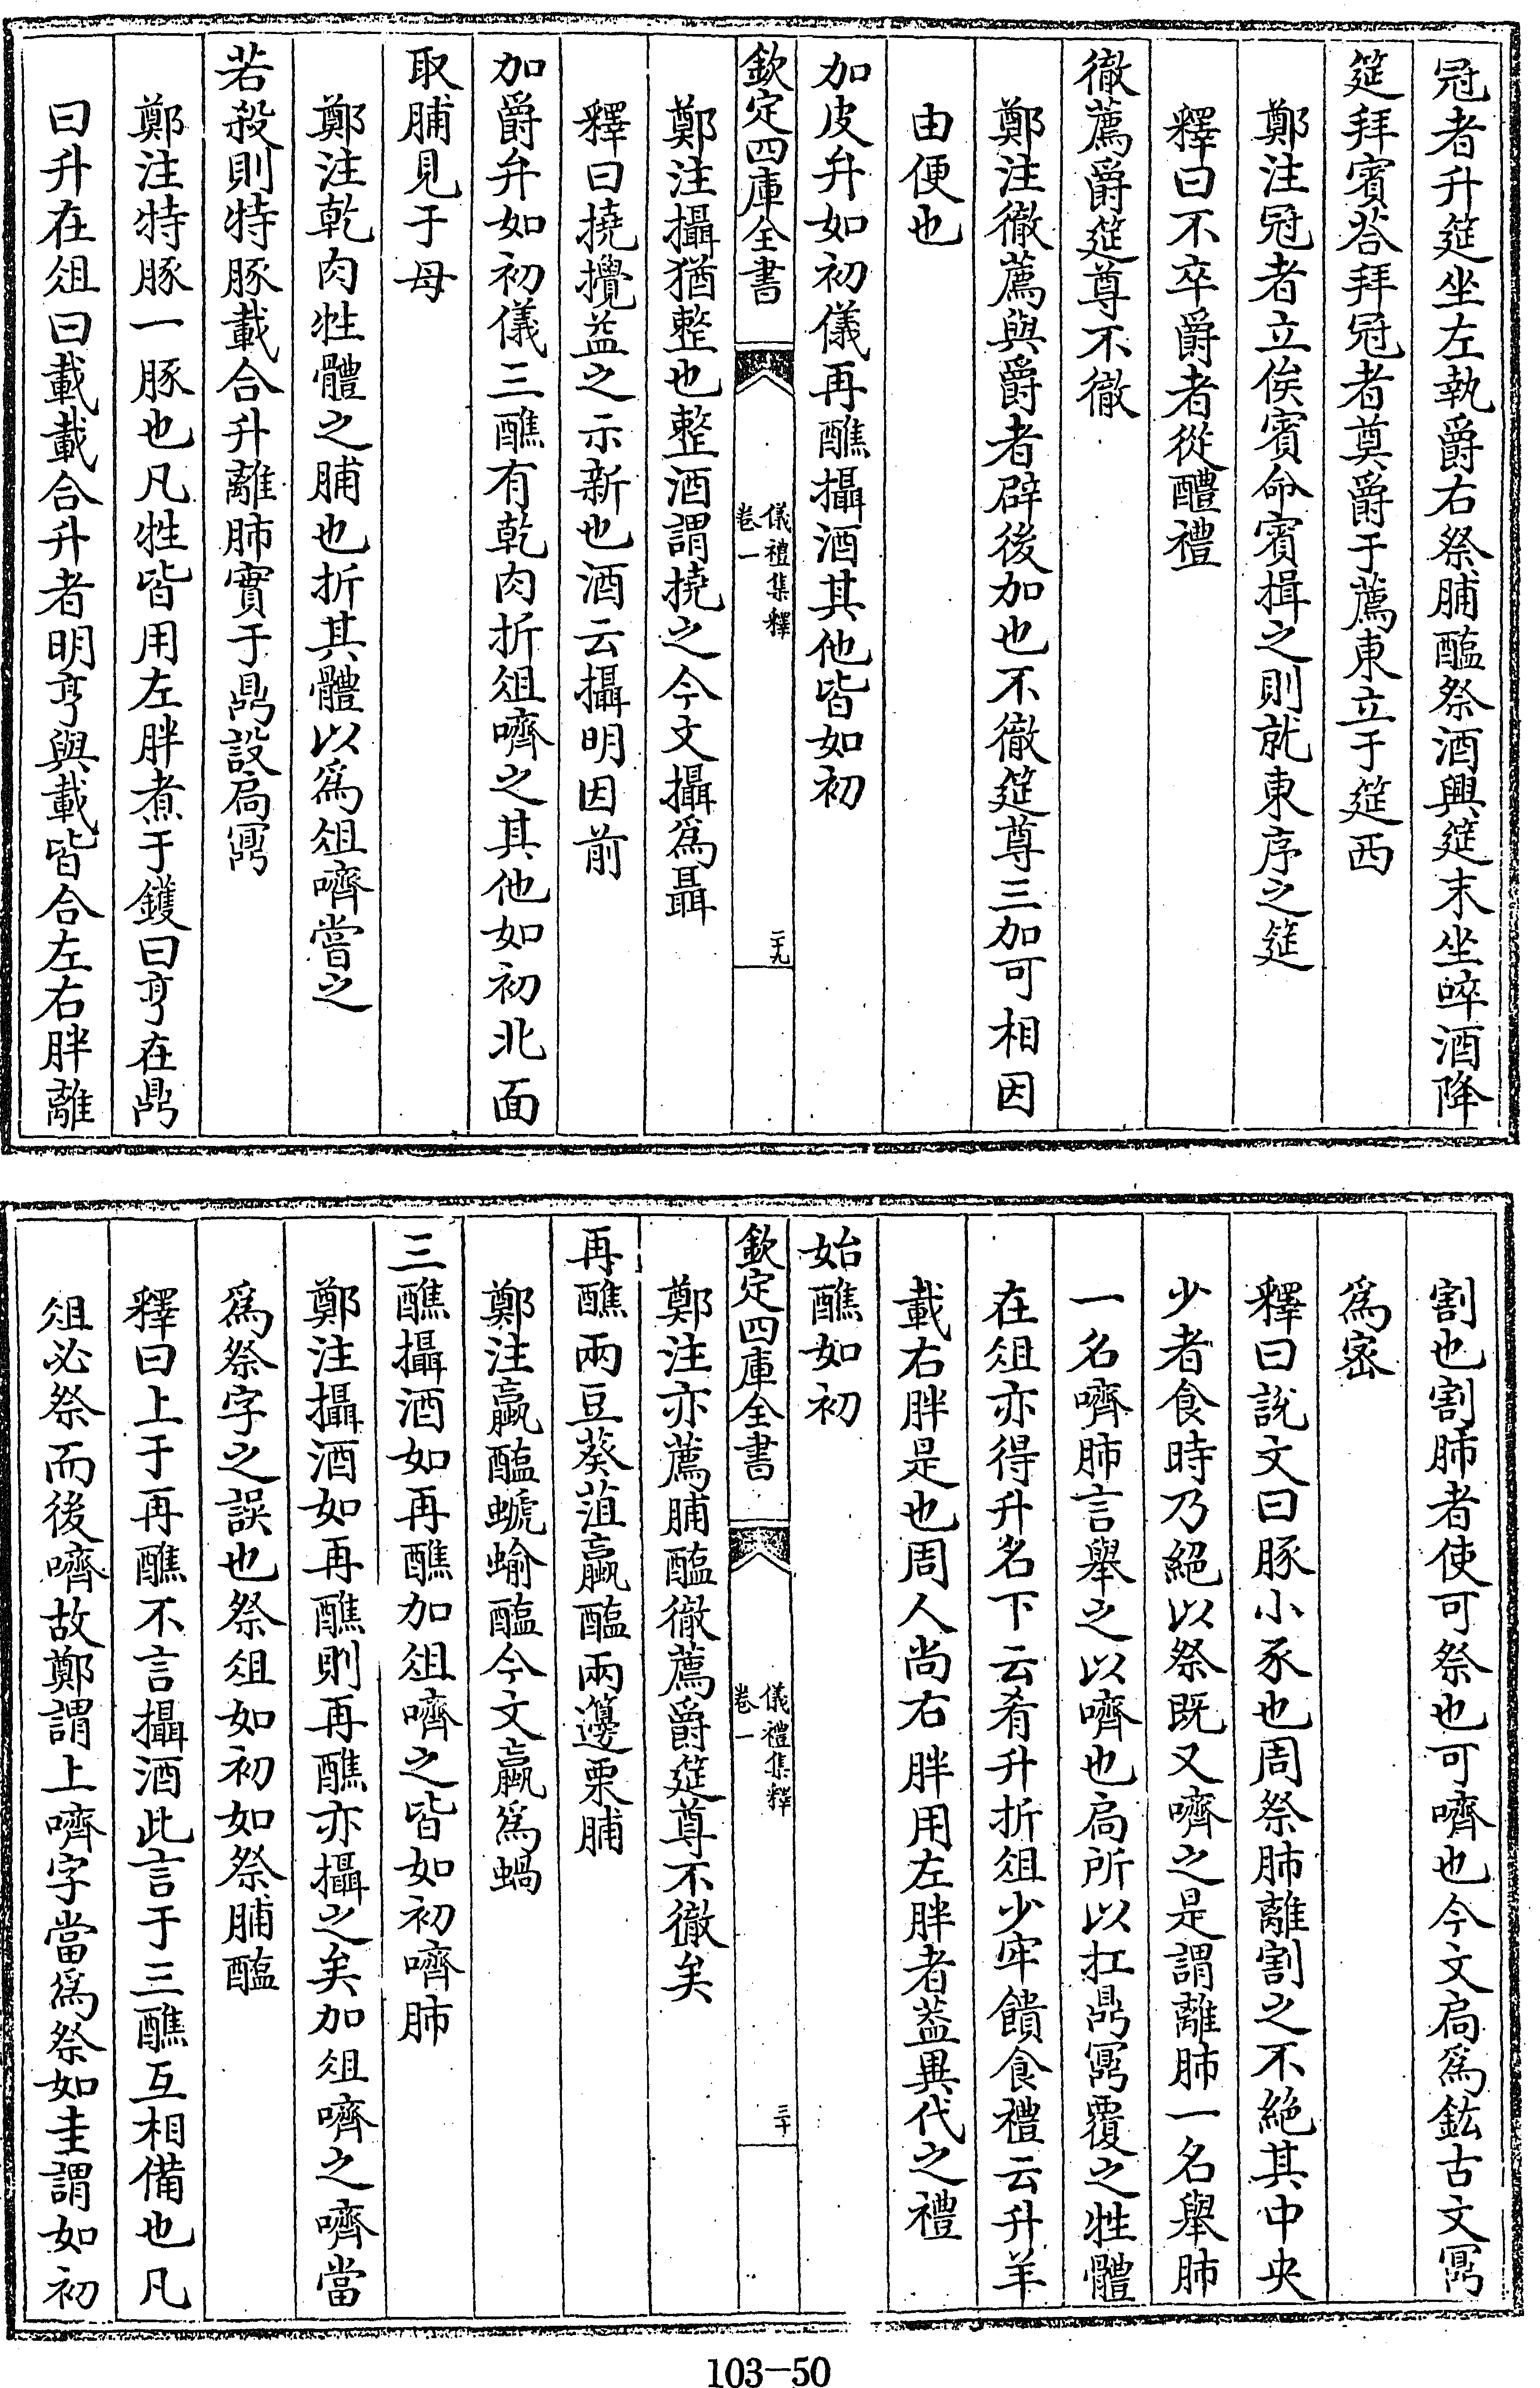 冠者升筵坐左執爵右祭脯醢祭酒興筵末坐啐酒降
筵拜賓荅拜冠者奠爵于薦東立于筵西
鄭注冠者立俟賓命賓揖之則就東序之筵
釋曰不卒爵者從醴禮
徹薦爵筵尊不徹
鄭注徹薦與爵者辟後加也不徹筵尊三加可相因
由便也
加皮弁如初儀再醮攝酒其他皆如初
欽定四庫全書
儀禮集釋
卷一
二十九
鄭注攝猶整也整酒謂撓之今文攝為聶
釋曰撓攪益之示新也酒云攝明因前
加爵弁如初儀三醮有乾肉折俎嚌之其他如初北面
取脯見于母
鄭注乾肉牲體之脯也折其體以為俎嚌嘗之
若殺則特豚載合升離肺實于鼎設扃鼏
鄭注特豚一豚也凡牲皆用左胖煮于鑊曰亨在鼎
曰升在俎曰載載合升者明亨與載皆合左右胖離
割也割肺者使可祭也可嚌也今文扃為鉉古文鼏
為密
釋曰說文曰豚小豕也周祭肺離割之不絕其中央
少者食時乃絕以祭既又嚌之是謂離肺一名舉肺
一名嚌肺言舉之以嚌也扃所以扛鼎鼏覆之牲體
在俎亦得升名下云肴升折俎少牢饋食禮云升羊
載右胖是也周人尚右胖用左胖者葢異代之禮
始醮如初
欽定四庫全書
儀禮集釋
卷一
三十
鄭注亦薦脯醢徹薦爵筵尊不徹矣
再醮兩豆葵菹蠃醢兩籩栗脯
鄭注蠃醢螔蝓醢今文蠃為蝸
三醮攝酒如再醮加俎嚌之皆如初嚌肺
鄭注攝酒如再醮則再醮亦攝之矣加俎嚌之嚌當
為祭字之誤也祭俎如初如祭脯醢
釋曰上于再醮不言攝酒此言于三醮互相備也凡
俎必祭而後嚌故鄭謂上嚌字當為祭如圭謂如初
103-50